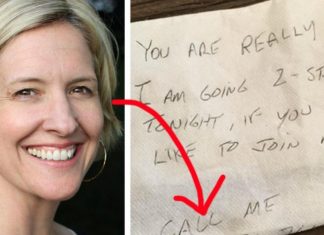 YOU ARE REALLY
I AM GOING 2-ST
TONIGHT, IF YOU
LIKE TO JOIN
CALL ME